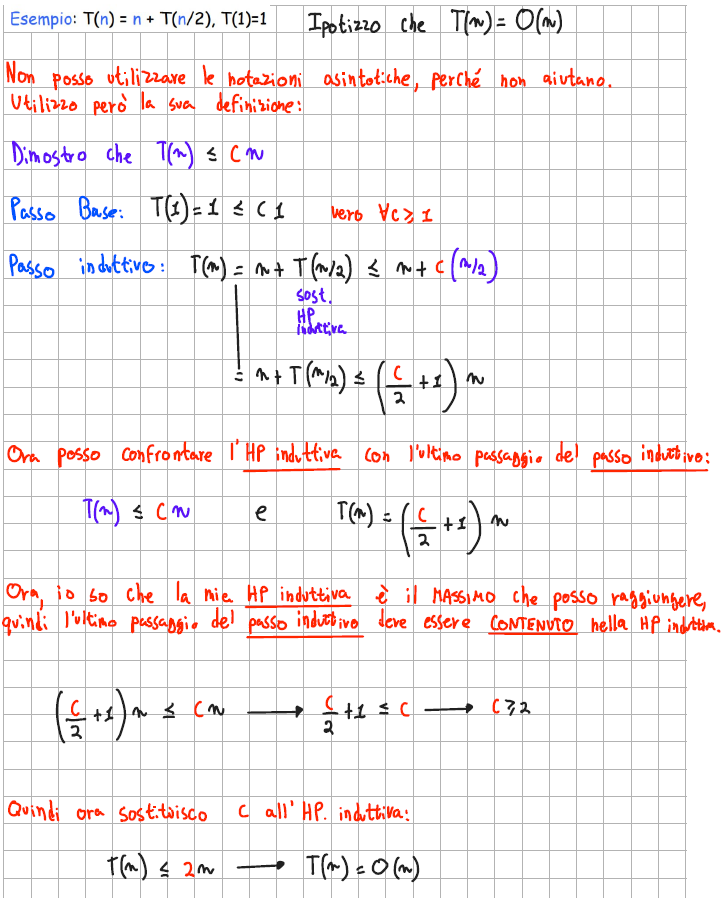 Esempio: T(n) = n + T(n/2), T(1)=1 Ipotizzo che T(n) = O(n)
Non posso utilizzare le notazioni asintotiche, perché non aiutano.
Utilizzo però la sua definizione:
Dimostro che T(n) ≤ C n
Passo Base: T(1) = 1 ≤ C 1 vero ∀c ≥ 1
Passo induttivo: T(n) = n + T(n/2) ≤ n + C (n/2)
sost.
HP
induttiva
= n + T(n/2) ≤ (C/2 + 1) n
Ora posso confrontare l'HP induttiva con l'ultimo passaggio del passo induttivo:
T(n) ≤ C n e T(n) = (C/2 + 1) n
Ora, io so che la mia HP induttiva è il MASSIMO che posso raggiungere,
quindi l'ultimo passaggio del passo induttivo deve essere CONTENUTO nella HP induttiva.
(C/2 + 1) n ≤ C n → C/2 + 1 ≤ C → C ≥ 2
Quindi ora sostituisco C all'HP. induttiva:
T(n) ≤ 2n → T(n) = O(n)